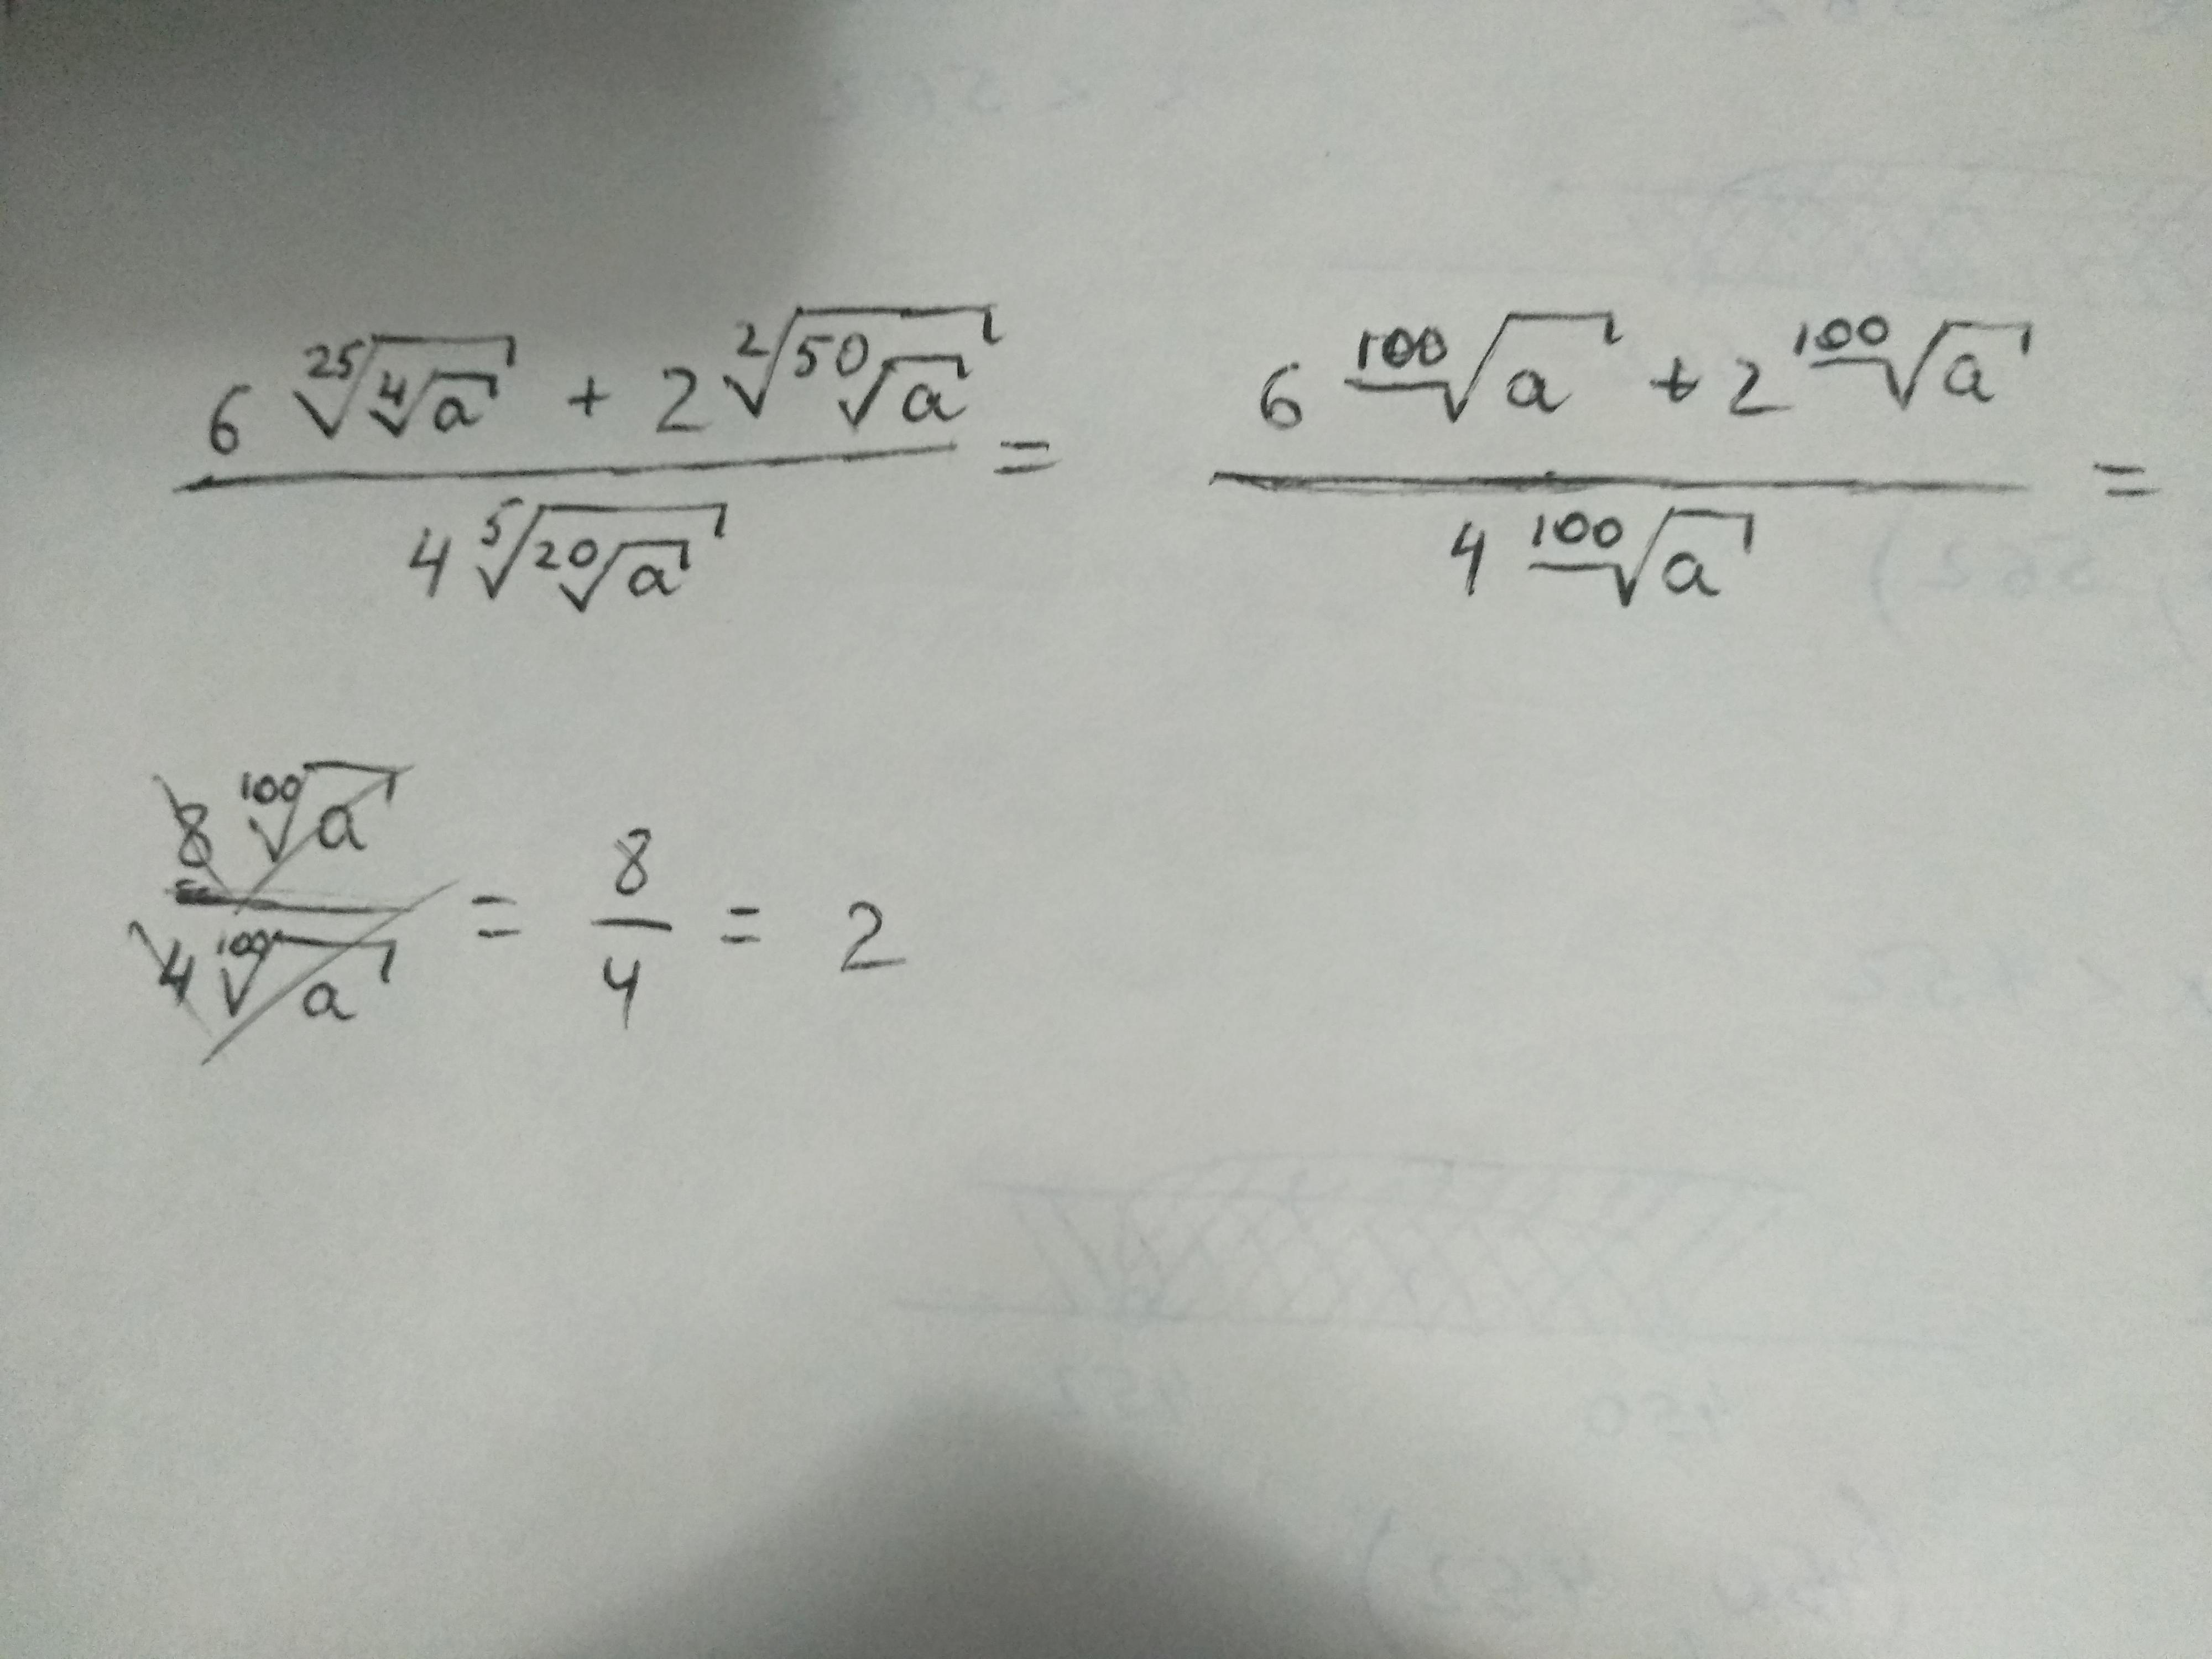 (6 ²⁵√(⁴√a) + 2 ²√(⁵⁰√a)) / (4 ⁵√(²⁰√a)) = (6 ¹⁰⁰√a + 2 ¹⁰⁰√a) / (4 ¹⁰⁰√a) =
(8 ¹⁰⁰√a) / (4 ¹⁰⁰√a) = 8 / 4 = 2